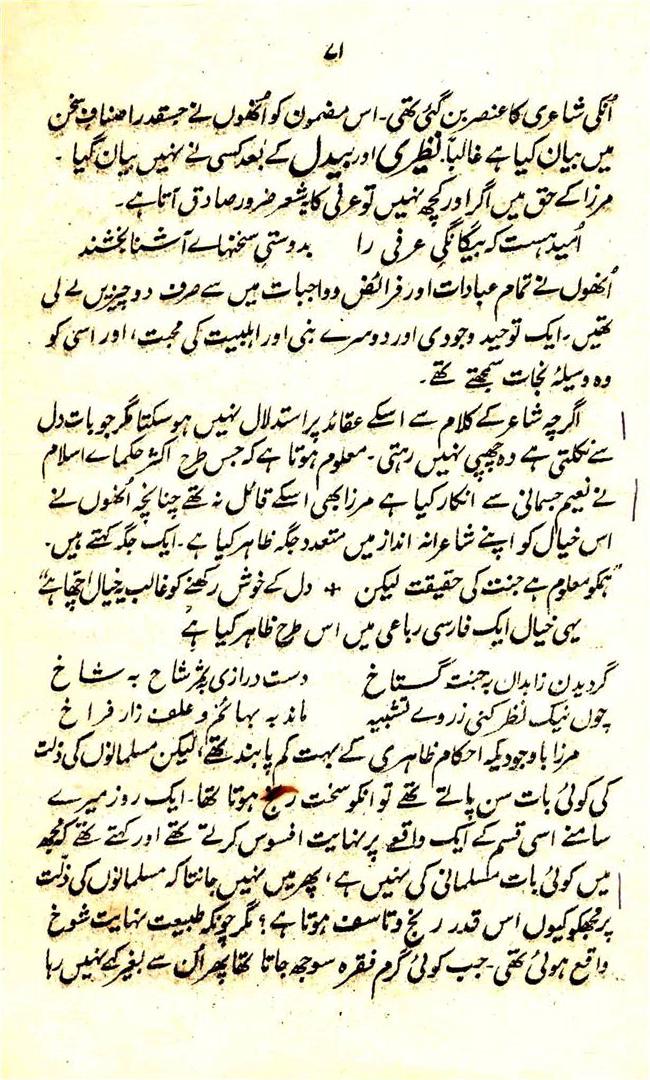 ۷۱
اُنکی شاعری کا عنصر بن گئی تھی۔ اس مضمون کو اُنھوں نے جسقدر اصنافِ سخن
میں بیان کیا ہے غالباً۔ نظیری اور بیدل کے بعد کسی نے نہیں بیان گیا ۔
مرزا کے حق میں اگر اور کچھ نہیں تو عرفی کا یہ شعر ضرور صادق آتا ہے۔
اُمید ہست کہ بیگانگیِ عرفی را بدوستیِ سخنہاے آشنا بخشند
اُنھوں نے تمام عبادات اور فرائض و واجبات میں سے صرف دو چیزیں لے لی
تھیں۔ ایک توحید وجودی اور دوسرے نبی اور اہلبیت کی محبت، اور اسی کو
وہ وسیلۂ نجات سمجھتے تھے۔
اگرچہ شاعر کے کلام سے اسکے عقائد پر استدلال نہیں ہو سکتا مگر جو بات دل
سے نکلتی ہے وہ چھپی نہیں رہتی۔ معلوم ہوتا ہے کہ جس طرح اکثر حکماے اسلام
نے نعیم جسمانی سے انکار کیا ہے مرزا بھی اسکے قائل نہ تھے چنانچہ اُنھوں نے
اس خیال کو اپنے شاعرانہ انداز میں متعدد جگہ ظاہر کیا ہے۔ ایک جگہ کہتے ہیں۔
"ہمکو معلوم ہے جنت کی حقیقت لیکن + دل کے خوش رکھنے کو غالب یہ خیال اچھا ہے"
یہی خیال ایک فارسی رباعی میں اس طرح ظاہر کیا ہے
گردیدن زاہداں بہ جنت گستاخ دست درازی بہ ثمر شاخ بہ شاخ
چوں نیک نظر کنی ز روے تشبیہ ماند بہ بہائم و علف زار فراخ
مرزا باوجودیکہ احکام ظاہری کے بہت کم پابند تھے، لیکن مسلمانوں کی ذلت
کی کوئی بات سن پاتے تھے تو انکو سخت رنج ہوتا تھا۔ ایک روز میرے
سامنے اسی قسم کے ایک واقعہ پر نہایت افسوس کرتے تھے اور کہتے تھے کہ مجھ
میں کوئی بات مسلمانی کی نہیں ہے، پھر میں نہیں جانتا کہ مسلمانوں کی ذلّت
پر مجھکو کیوں اس قدر رنج و تاسف ہوتا ہے؟ مگر چونکہ طبیعت نہایت شوخ
واقع ہوئی تھی۔ جب کوئی گرم فقرہ سوجھ جاتا تھا پھر اُن سے بغیر کہے نہیں رہا